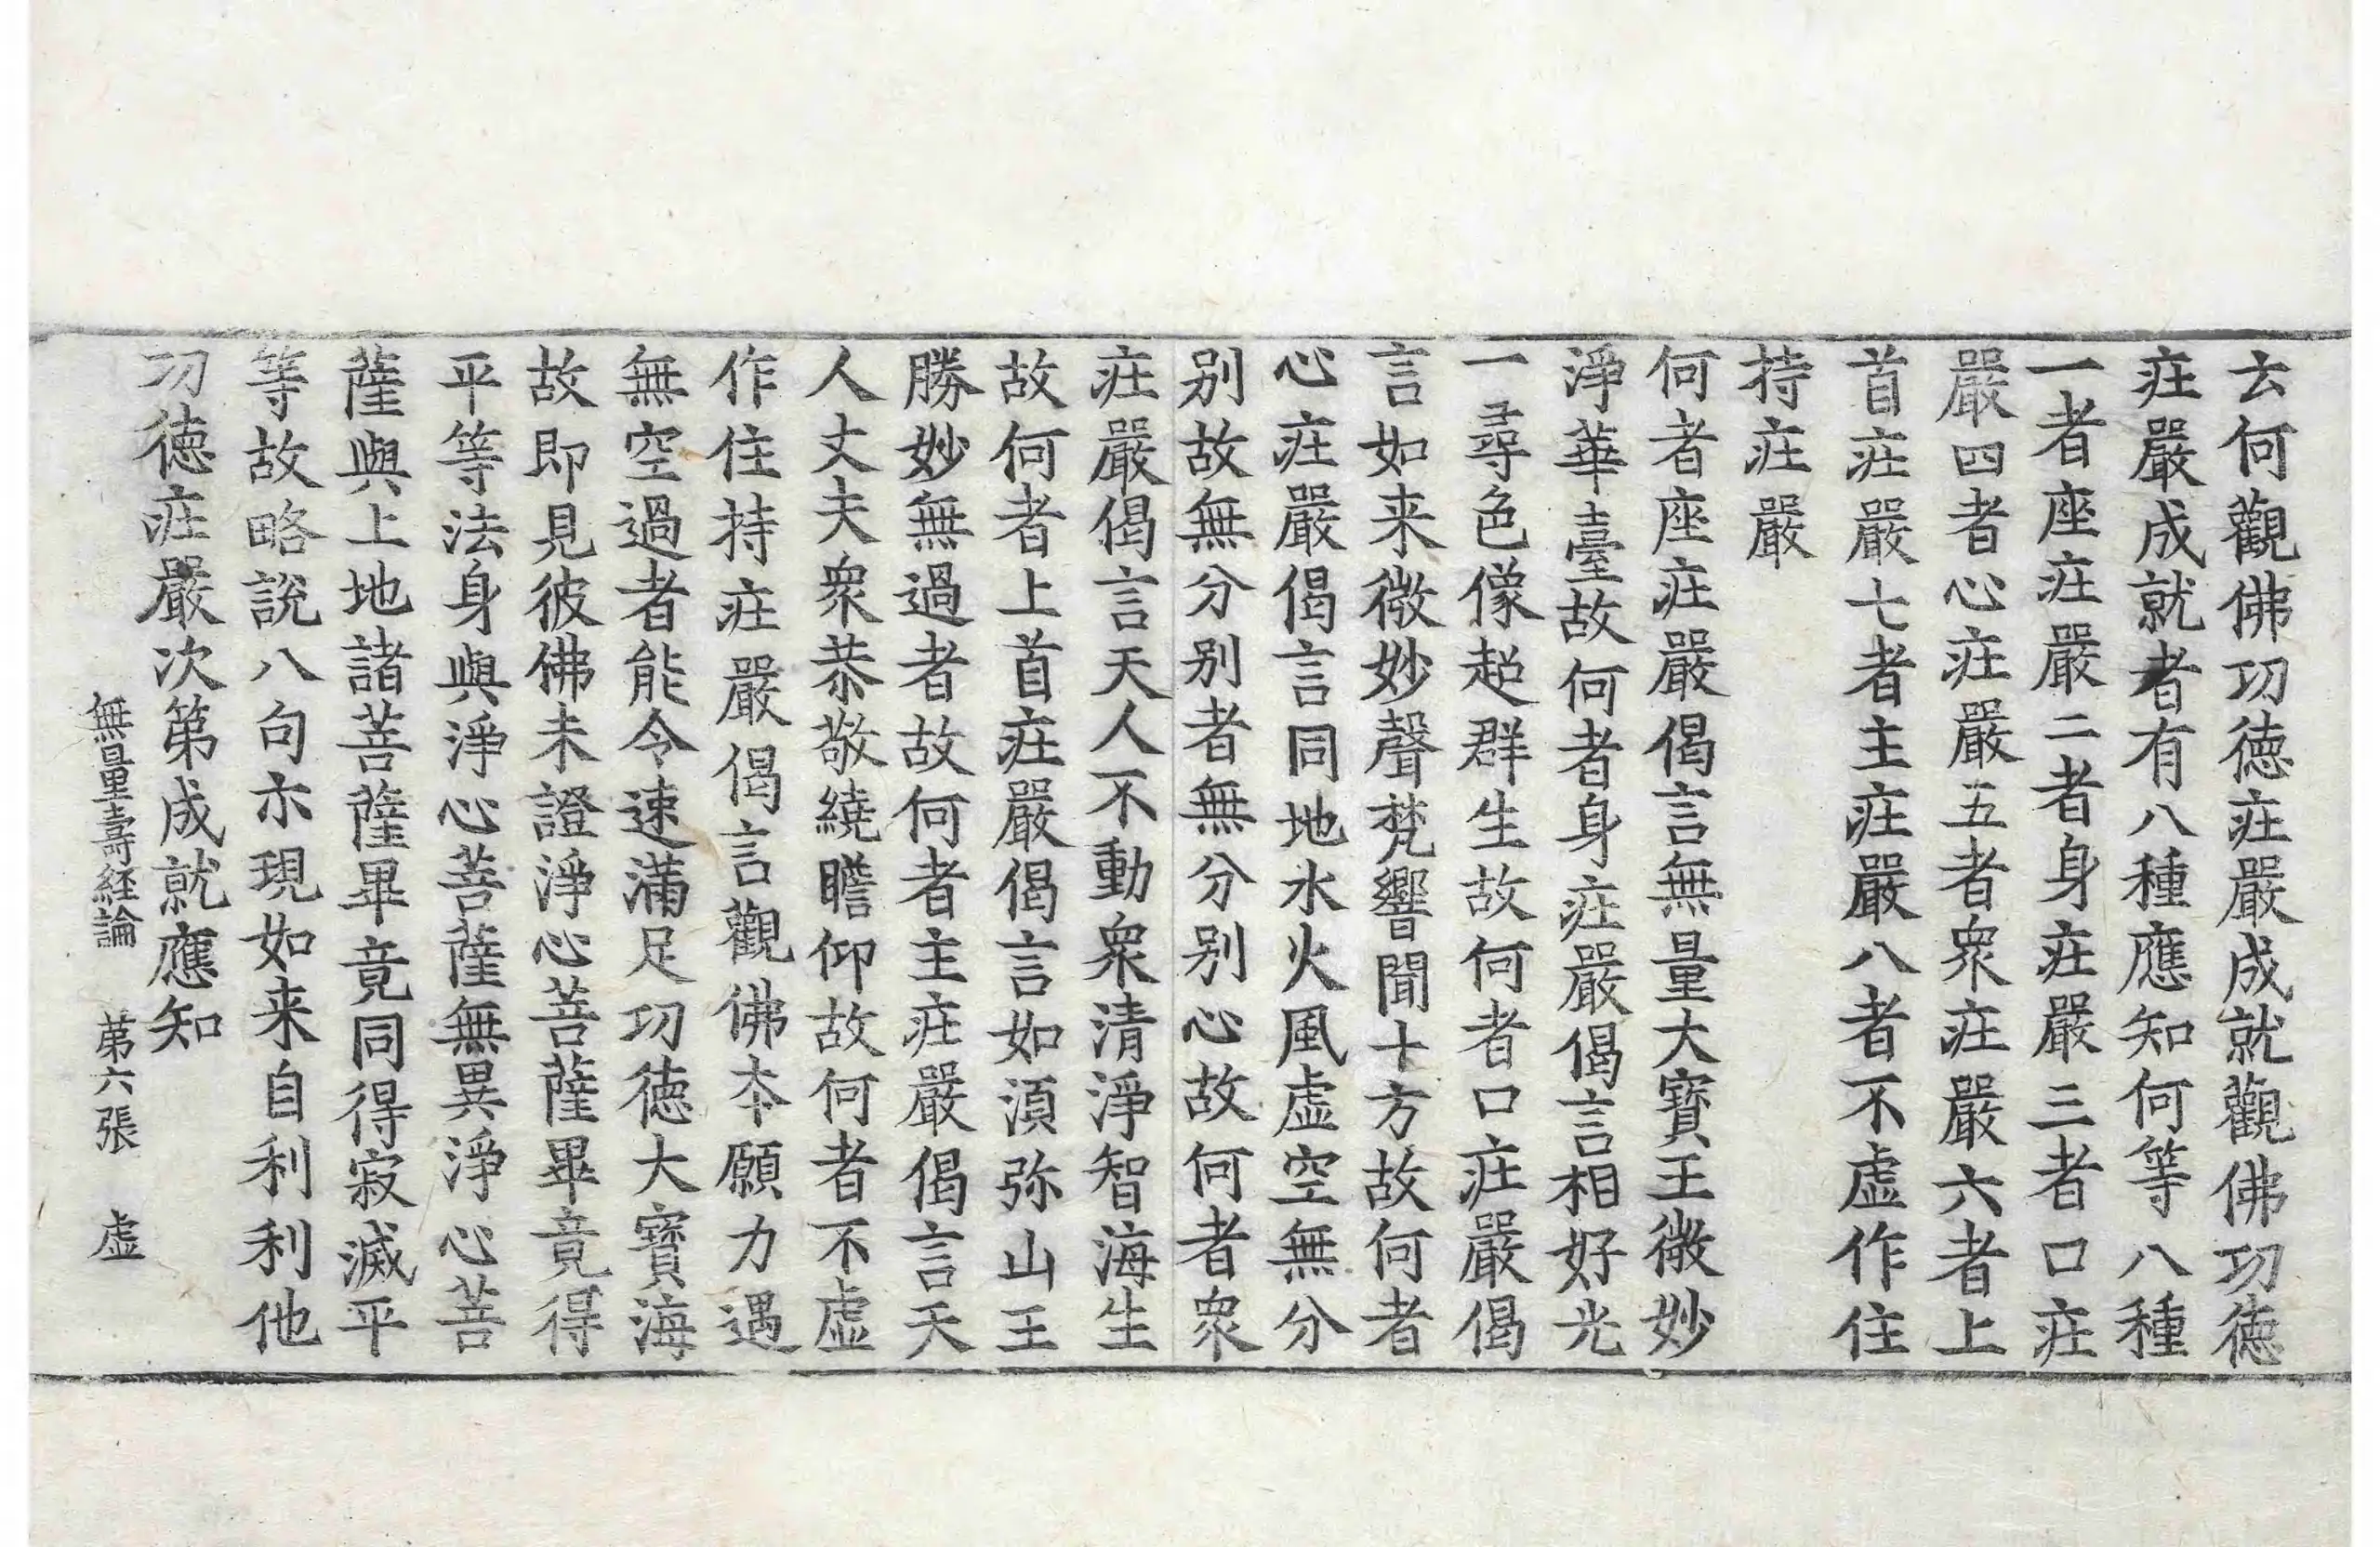 去何觀佛功徳莊嚴成就觀佛功徳
莊嚴成就者有八種應知何等八種
一者座莊嚴二者身莊嚴三者口莊
嚴四者心莊嚴五者衆莊嚴六者上
首莊嚴七者主莊嚴八者不虛作住
持莊嚴
何者座莊嚴偈言無量大寶王微妙
淨華臺故何者身莊嚴偈言相好光
一尋色像超群生故何者口莊嚴偈
言如来微妙聲梵響聞十方故何者
心莊嚴偈言同地水火風虛空無分
别故無分别者無分别心故何者衆
莊嚴偈言天人不動衆清淨智海生
故何者上首莊嚴偈言如湏弥山王
勝妙無過者故何者主莊嚴偈言天
人丈夫衆恭敬繞瞻仰故何者不虛
作住持莊嚴偈言觀佛夲願力遇
無空過者能令速滿足功徳大寶海
故即見彼佛未證淨心菩薩畢竟得
平等法身與淨心菩薩無異淨心菩
薩與上地諸菩薩畢竟同得寂滅平
等故略說八句示現如来自利利他
功徳莊嚴次第成就應知
無量壽経論 第六張 虛